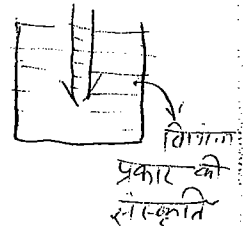 विभिन्न
प्रकार की
संस्कृति